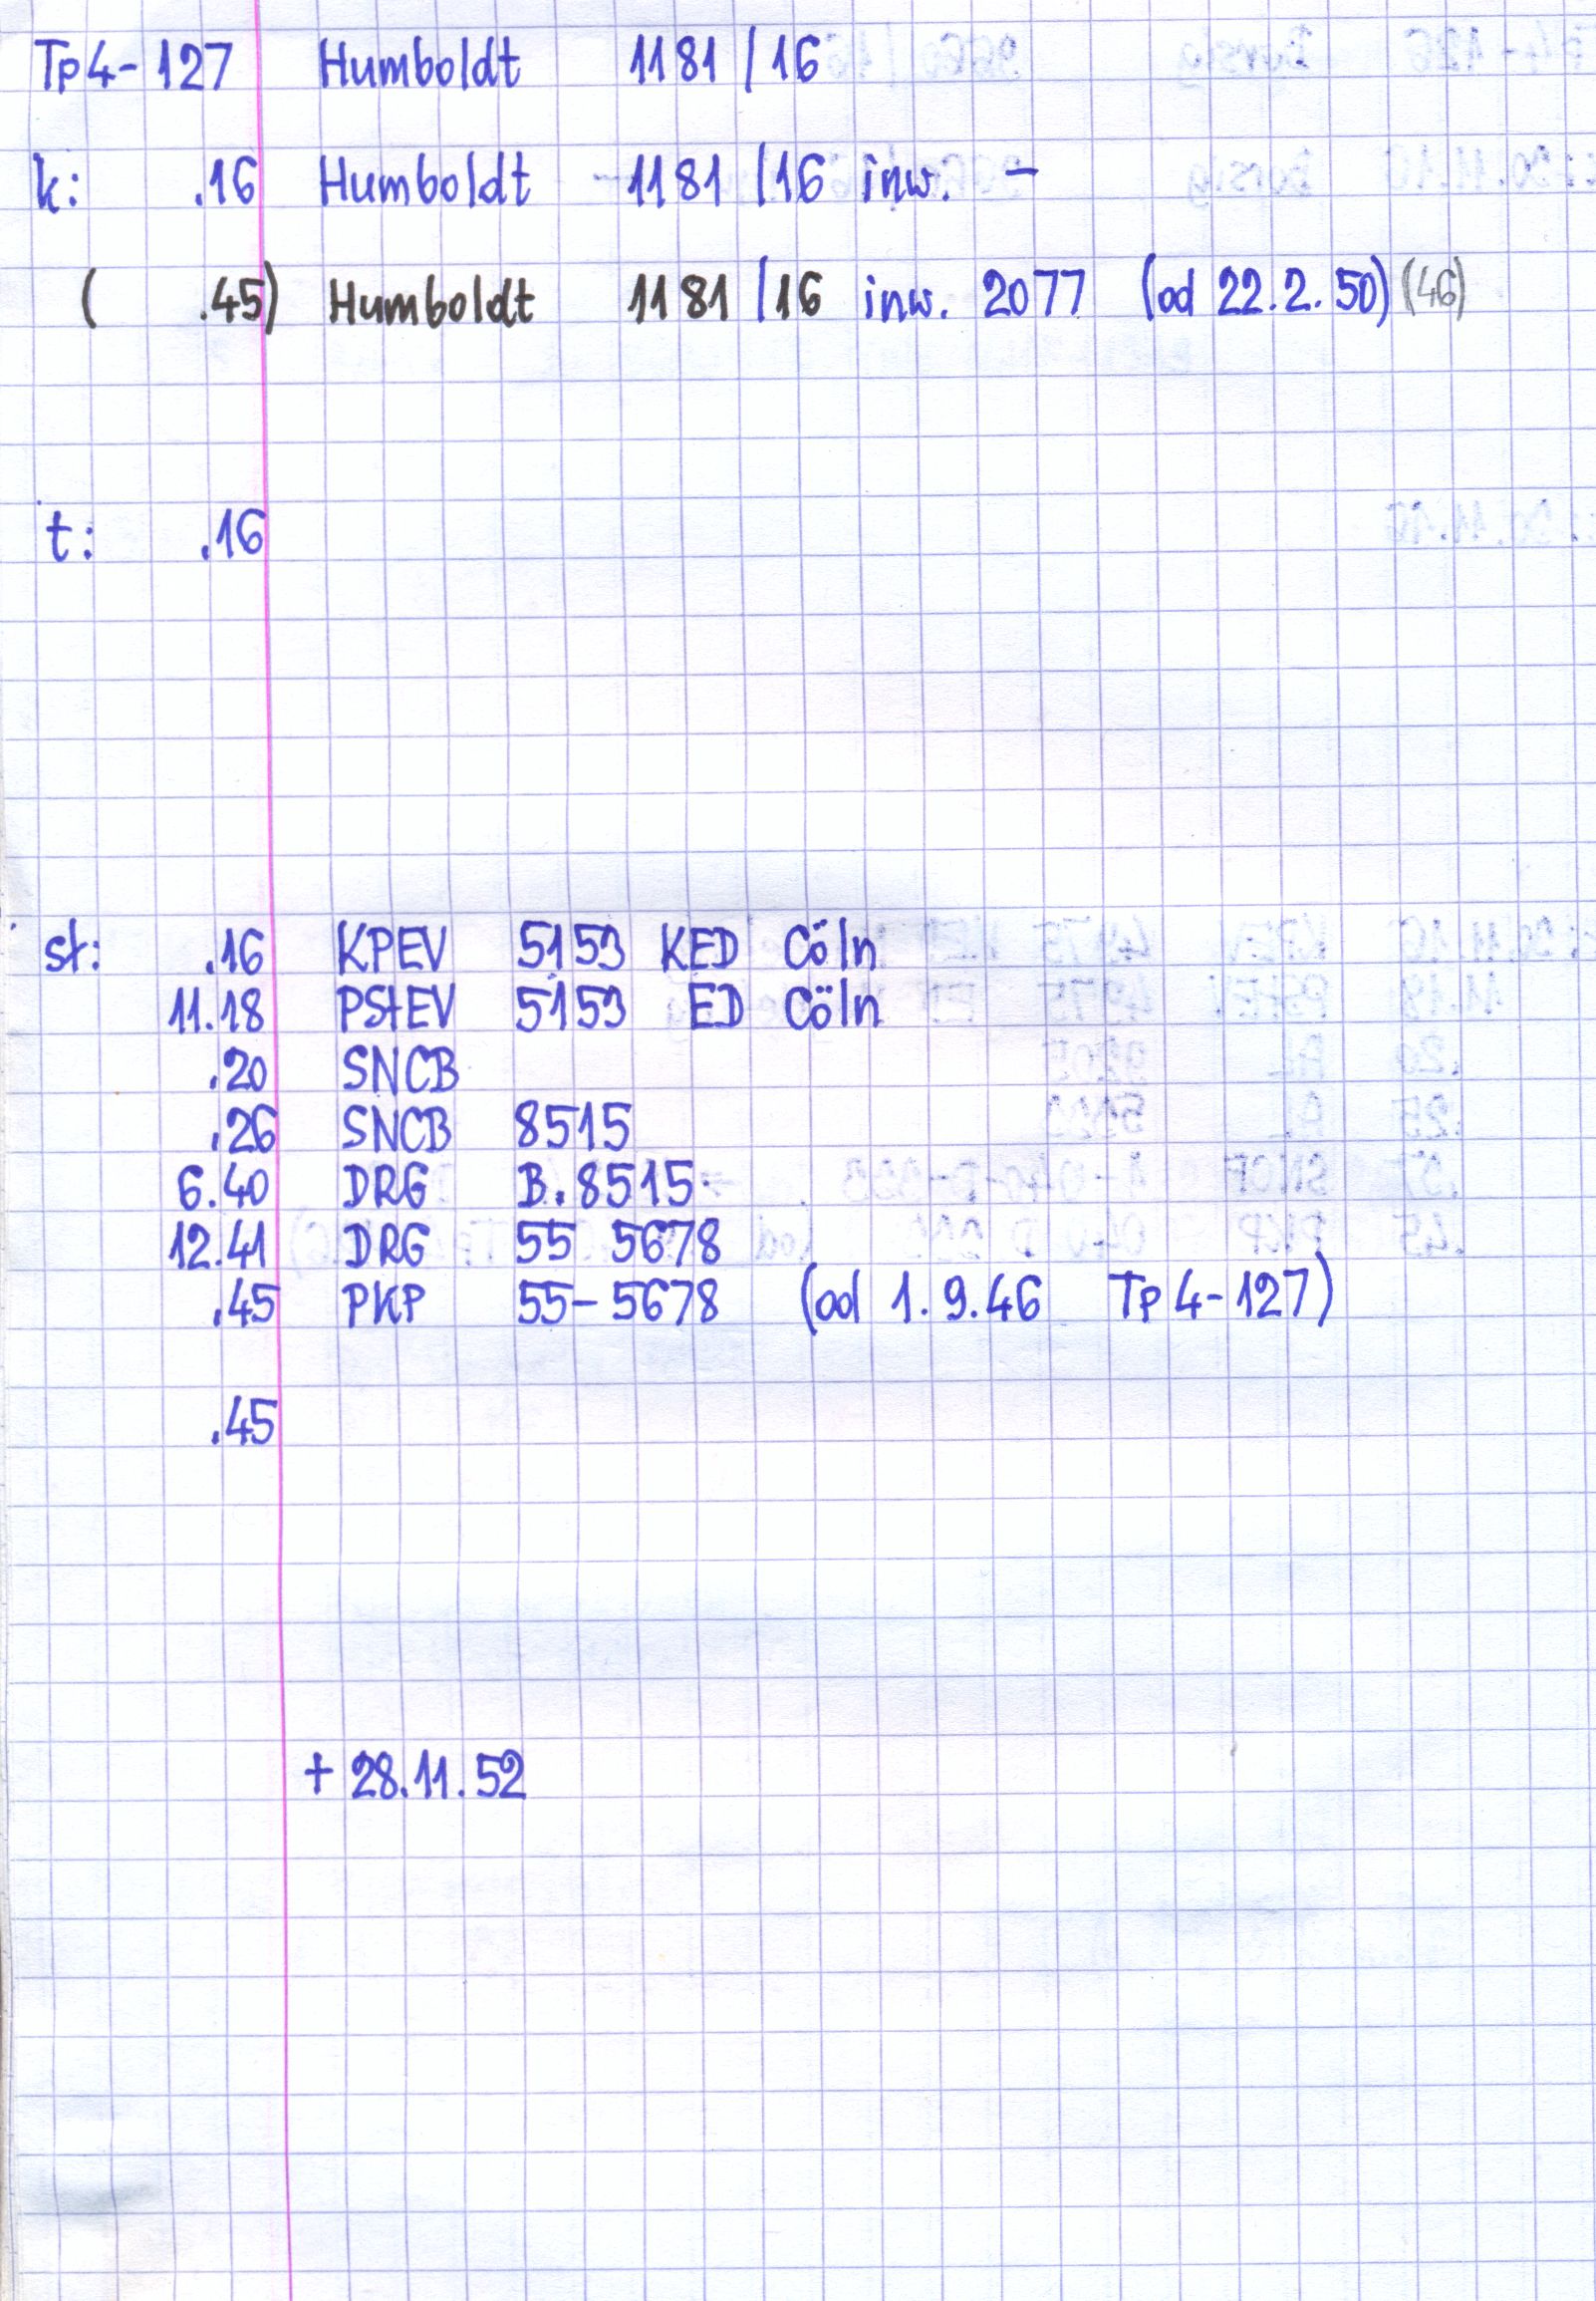 Tp4-127 Humboldt 1181/16
k: .16 Humboldt 1181/16 inw. -
( .45) Humboldt 1181/16 inw. 2077 (od 22.2.50) (46)
t: .16
st: .16 KPEV 5153 KED Cöln
11.18 PStEV 5153 ED Cöln
.20 SNCB
.26 SNCB 8515
6.40 DRG B.8515
12.41 DRG 55 5678
.45 PKP 55-5678 (od 1.9.46 Tp4-127)
.45
+ 28.11.52